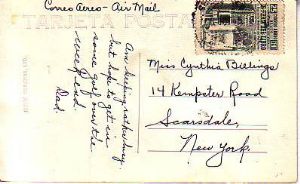 Correo Aereo - Air Mail
TARJETA POSTAL
Am
but hope to get in
some golf over the
weekend.
Dad.
Miss Cynthia Billings
14 Kempster Road
Scarsdale,
New York.